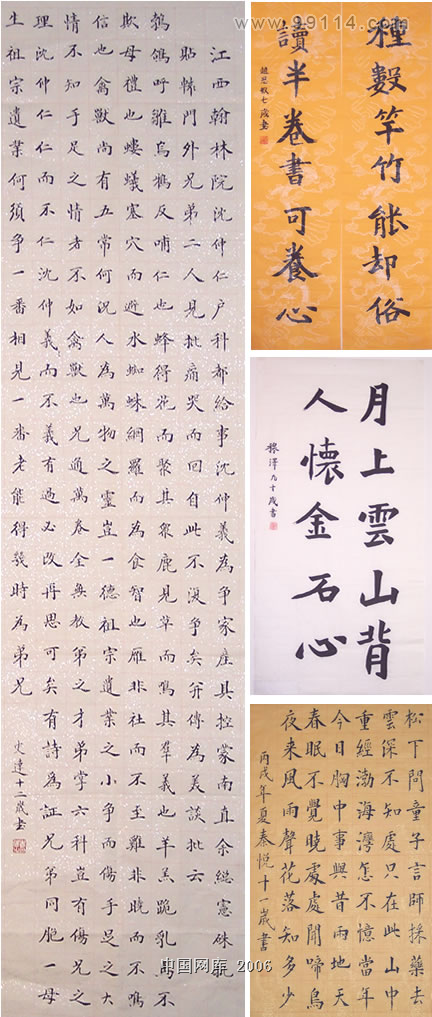 江西翰林院沈仲仁戶科都給事沈仲義為爭家產具控蒙南直余總憲硃批
貼門外兄弟二人見批痛哭而回自此不復爭矣并傳為美談批云
鵓鴿呼雛烏鴉反哺仁也蜂得花而聚其眾鹿見草而鳴其羣義也羊羔跪乳馬不
欺母禮也螻蟻塞穴而避水蜘蛛網羅而為食智也雁非社而不至雞非曉而不鳴
信也禽獸尚有五常何況人為萬物之靈豈一德祖宗遺業之小爭而傷手足之大
情不知手足之情者不如禽獸也兄通萬卷全無教弟之才弟掌六科豈有傷兄之
理沈仲仁仁而不仁沈仲義而不義有過必改再思可矣有詩為証兄弟同胞一母
生祖宗遺業何須爭一番相見一番老能得幾時為弟兄
史達十二歲書
www.99114.com
種數竿竹能却俗
讀半卷書可養心
七歲書
月上雲山背
人懷金石心
穆澤九十歲書
松下問童子言師採藥去
雲深不知處只在此山中
重經渤海灣怎不憶當年
今日胸中事興昔雨地天
春眠不覺曉處處聞啼鳥
夜來風雨聲花落知多少
丙戌年夏秦悅十一歲書
中国网库 2006